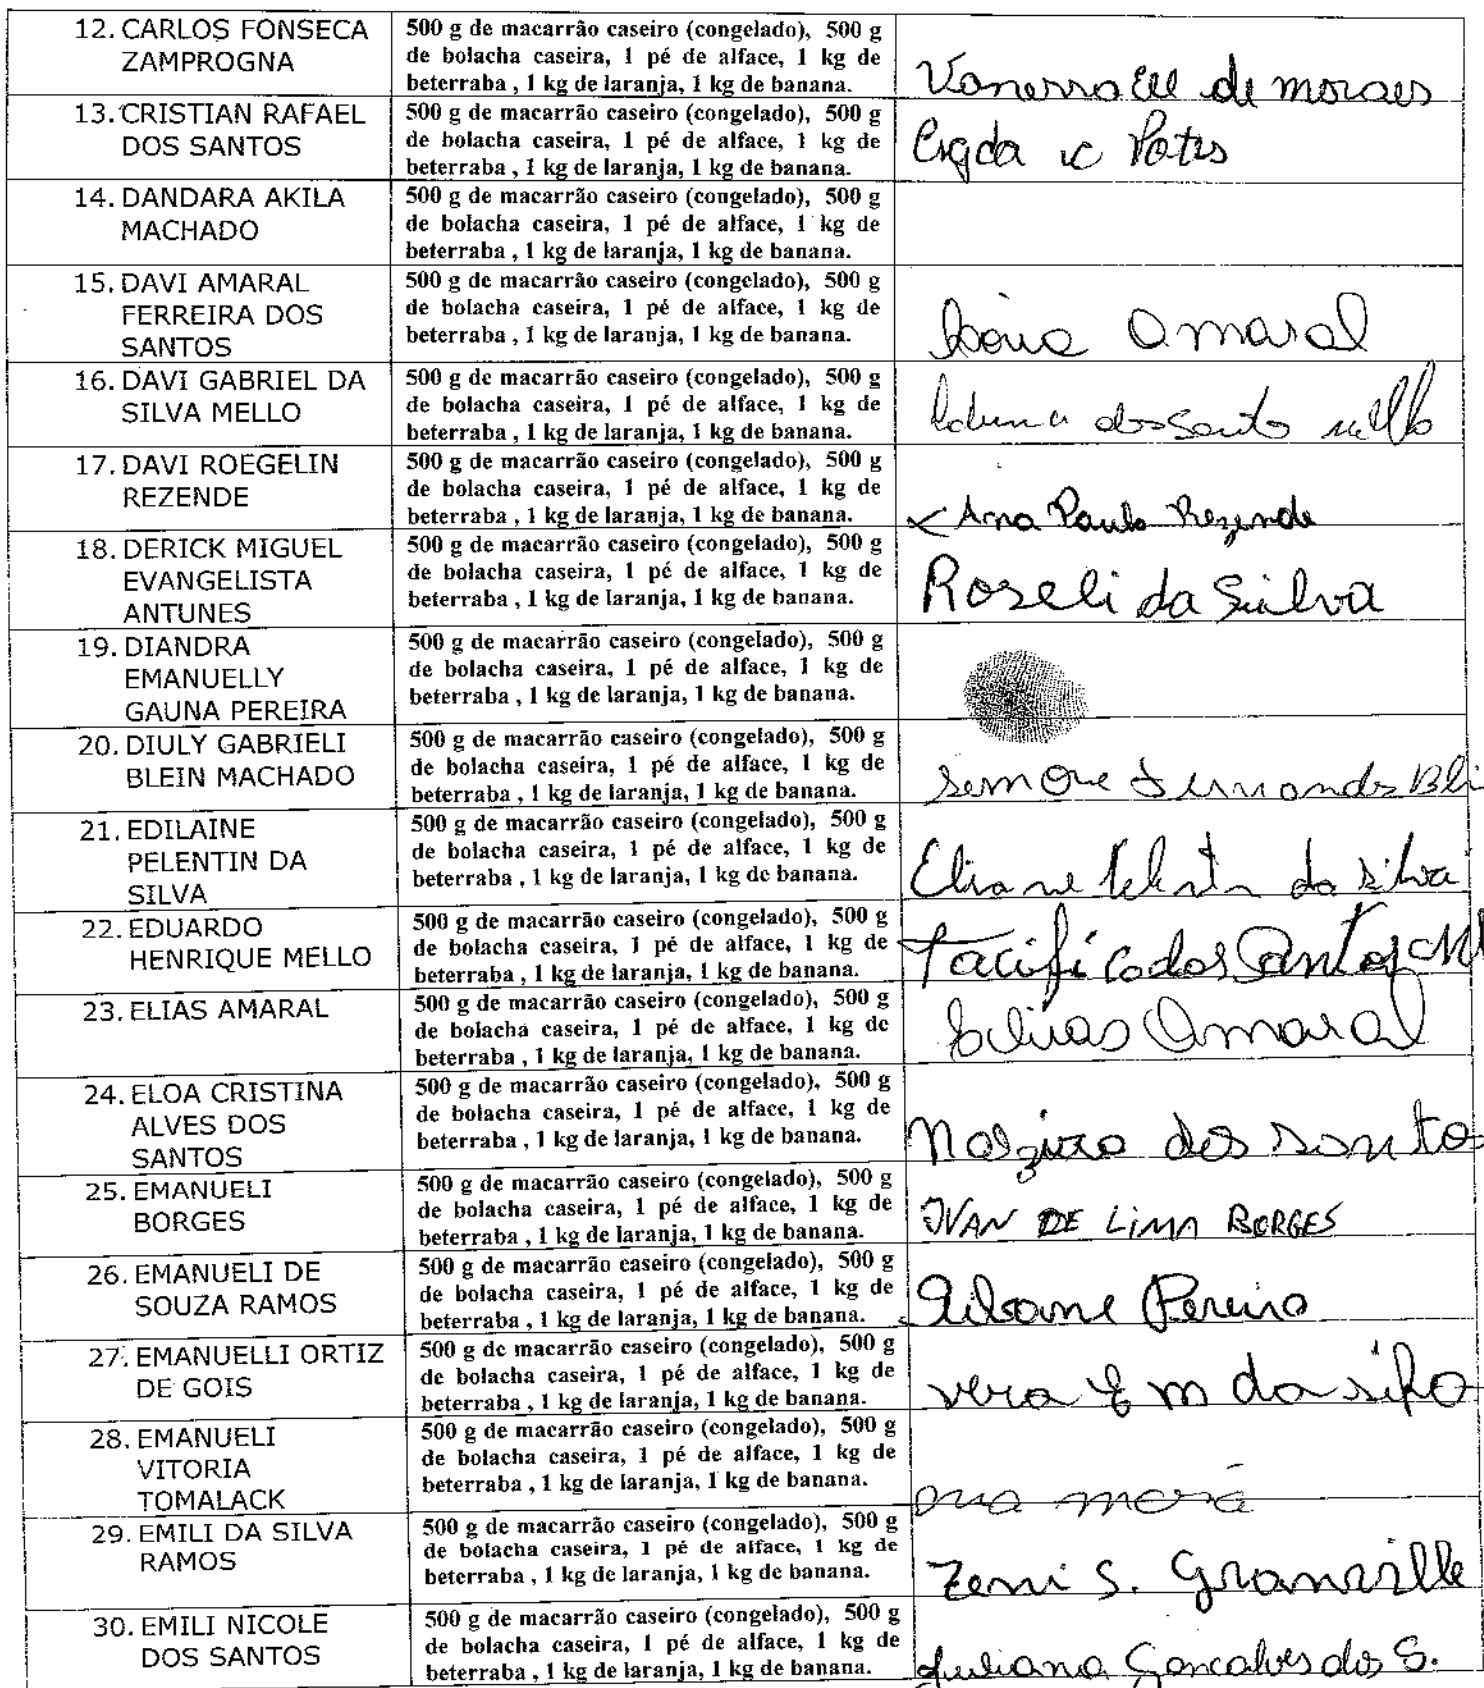 12. CARLOS FONSECA
ZAMPROGNA
500 g de macarrão caseiro (congelado), 500 g
de bolacha caseira, 1 pé de alface, 1 kg de
beterraba , 1 kg de laranja, 1 kg de banana.
de moraes
13. CRISTIAN RAFAEL
DOS SANTOS
500 g de macarrão caseiro (congelado), 500 g
de bolacha caseira, 1 pé de alface, 1 kg de
beterraba , 1 kg de laranja, 1 kg de banana.
14. DANDARA AKILA
MACHADO
500 g de macarrão caseiro (congelado), 500 g
de bolacha caseira, 1 pé de alface, 1 kg de
beterraba , 1 kg de laranja, 1 kg de banana.
15. DAVI AMARAL
FERREIRA DOS
SANTOS
500 g de macarrão caseiro (congelado), 500 g
de bolacha caseira, 1 pé de alface, 1 kg de
beterraba , 1 kg de laranja, 1 kg de banana.
Amaral
16. DAVI GABRIEL DA
SILVA MELLO
500 g de macarrão caseiro (congelado), 500 g
de bolacha caseira, 1 pé de alface, 1 kg de
beterraba , 1 kg de laranja, 1 kg de banana.
dos Santo mello
17. DAVI ROEGELIN
REZENDE
500 g de macarrão caseiro (congelado), 500 g
de bolacha caseira, 1 pé de alface, 1 kg de
beterraba , 1 kg de laranja, 1 kg de banana.
Ana Paula Rezende
18. DERICK MIGUEL
EVANGELISTA
ANTUNES
500 g de macarrão caseiro (congelado), 500 g
de bolacha caseira, 1 pé de alface, 1 kg de
beterraba , 1 kg de laranja, 1 kg de banana.
Roseli da Silva
19. DIANDRA
EMANUELLY
GAUNA PEREIRA
500 g de macarrão caseiro (congelado), 500 g
de bolacha caseira, 1 pé de alface, 1 kg de
beterraba , 1 kg de laranja, 1 kg de banana.
20. DIULY GABRIELI
BLEIN MACHADO
500 g de macarrão caseiro (congelado), 500 g
de bolacha caseira, 1 pé de alface, 1 kg de
beterraba , 1 kg de laranja, 1 kg de banana.
21. EDILAINE
PELENTIN DA
SILVA
500 g de macarrão caseiro (congelado), 500 g
de bolacha caseira, 1 pé de alface, 1 kg de
beterraba , 1 kg de laranja, 1 kg de banana.
Eliane da silva
22. EDUARDO
HENRIQUE MELLO
500 g de macarrão caseiro (congelado), 500 g
de bolacha caseira, 1 pé de alface, 1 kg de
beterraba , 1 kg de laranja, 1 kg de banana.
dos Santos
23. ELIAS AMARAL
500 g de macarrão caseiro (congelado), 500 g
de bolacha caseira, 1 pé de alface, 1 kg de
beterraba , 1 kg de laranja, 1 kg de banana.
Amaral
24. ELOA CRISTINA
ALVES DOS
SANTOS
500 g de macarrão caseiro (congelado), 500 g
de bolacha caseira, 1 pé de alface, 1 kg de
beterraba , 1 kg de laranja, 1 kg de banana.
dos santos
25. EMANUELI
BORGES
500 g de macarrão caseiro (congelado), 500 g
de bolacha caseira, 1 pé de alface, 1 kg de
beterraba , 1 kg de laranja, 1 kg de banana.
IVAN DE LIMA BORGES
26. EMANUELI DE
SOUZA RAMOS
500 g de macarrão caseiro (congelado), 500 g
de bolacha caseira, 1 pé de alface, 1 kg de
beterraba , 1 kg de laranja, 1 kg de banana.
Pereira
27. EMANUELLI ORTIZ
DE GOIS
500 g de macarrão caseiro (congelado), 500 g
de bolacha caseira, 1 pé de alface, 1 kg de
beterraba , 1 kg de laranja, 1 kg de banana.
vera
28. EMANUELI
VITORIA
TOMALACK
500 g de macarrão caseiro (congelado), 500 g
de bolacha caseira, 1 pé de alface, 1 kg de
beterraba , 1 kg de laranja, 1 kg de banana.
29. EMILI DA SILVA
RAMOS
500 g de macarrão caseiro (congelado), 500 g
de bolacha caseira, 1 pé de alface, 1 kg de
beterraba , 1 kg de laranja, 1 kg de banana.
Zeni S.
30. EMILI NICOLE
DOS SANTOS
500 g de macarrão caseiro (congelado), 500 g
de bolacha caseira, 1 pé de alface, 1 kg de
beterraba , 1 kg de laranja, 1 kg de banana.
Juliana Goncalves dos S.